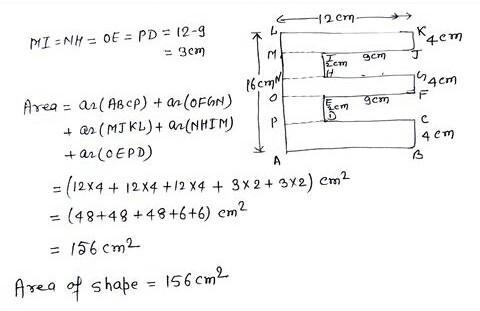 MI = NH = OE = PD = 12-9
= 3cm
Area = ar(ABCP) + ar(OFGN)
+ ar(MJKL) + ar(NHIM)
+ ar(OEPD)
= (12×4 + 12×4 + 12×4 + 3×2 + 3×2) cm²
= (48+48+48+6+6) cm²
= 156 cm²
Area of shape = 156 cm²
12cm
L K
4cm
M I 9cm J
2cm
16cm N H G 4cm
O E 9cm F
2cm
P D C
4cm
A B